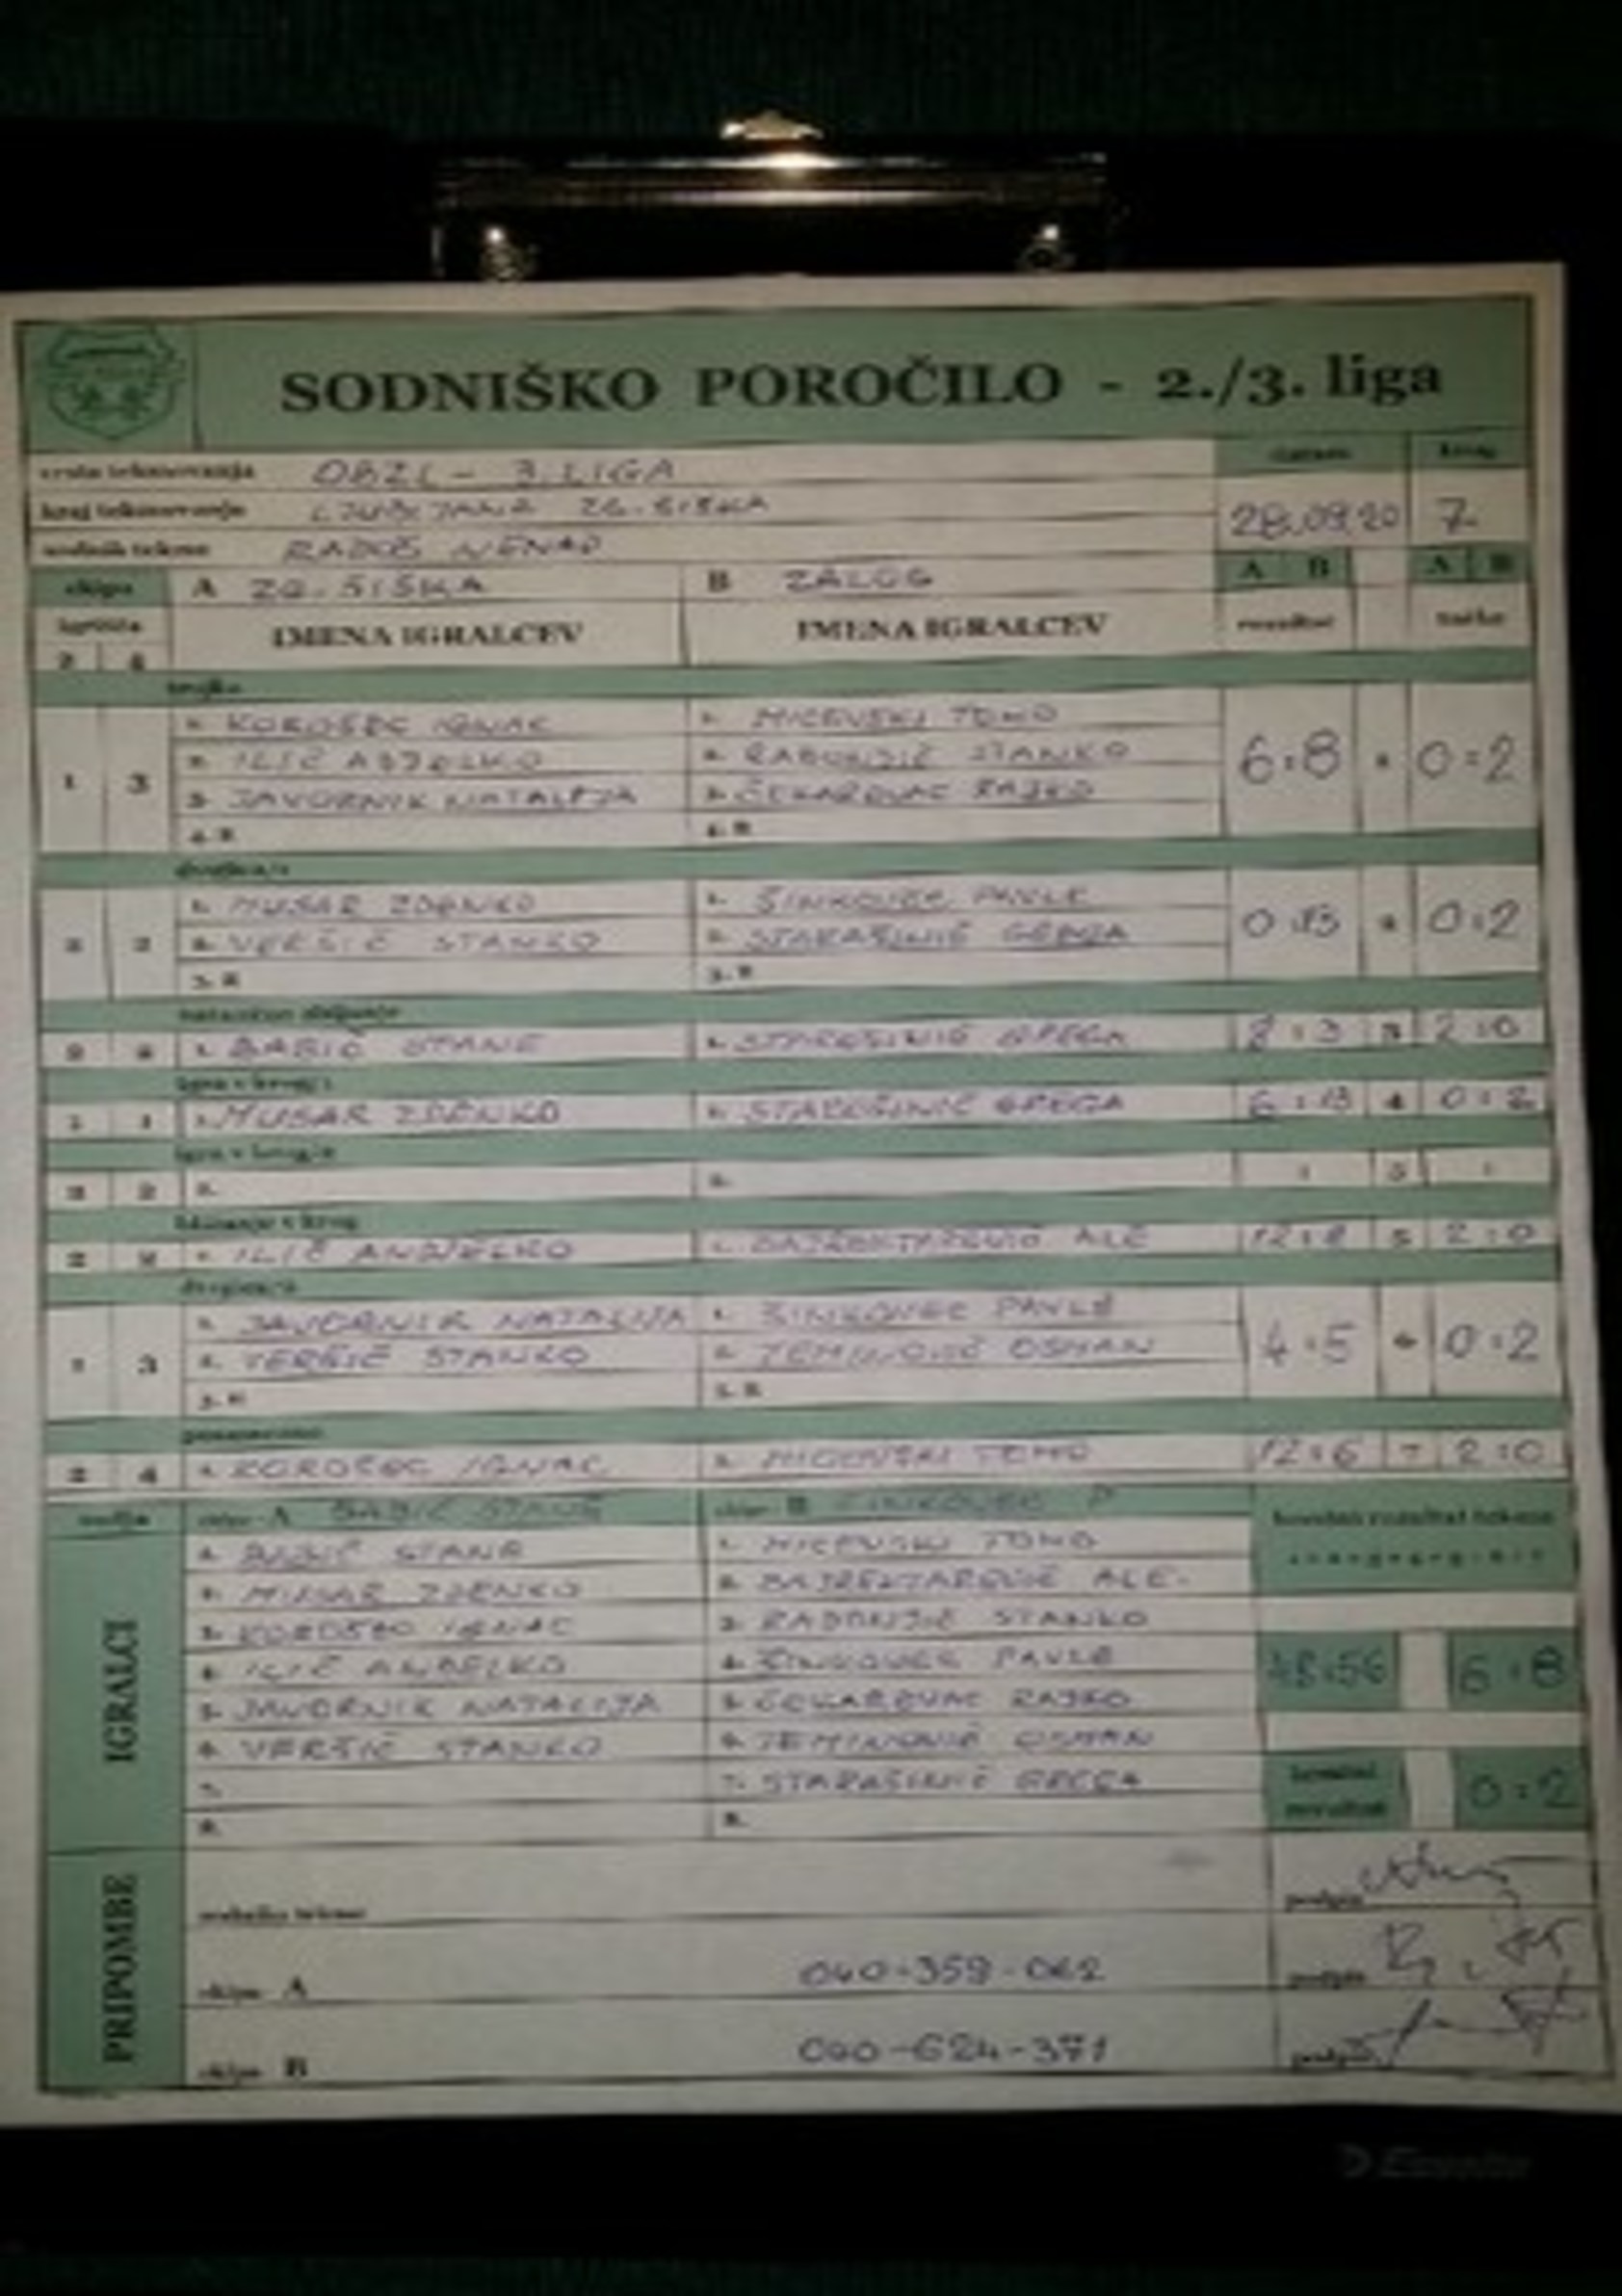 SODNIŠKO POROČILO - 2./3. liga
vrsta tekmovanja OBZL - 3. LIGA datum krog
kraj tekmovanja LJUBLJANA ZG. ŠIŠKA 28.09.20 7.
sodnik tekme RADOŠ NENAD
ekipa A ZG. ŠIŠKA B ZALOG A B A B
igrišča IMENA IGRALCEV IMENA IGRALCEV rezultat točke
2 4
trojka
1. KOROŠEC IGNAC 1. MICEVSKI TOMO
1 3 2. ILIČ 2. STANKO 6:8 0:2
3. JAVORNIK NATALIJA 3. RAJKO
4. R 4. R
dvojka/1
1. MUSAR ZDENKO 1. ŠINKOVEC PAVLE
2 2. VERŠIČ STANKO 2. GREGA 0:13 2 0:2
3. R 3. R
natančno zbijanje
1. BABIČ STANE 1. GREGA 8:3 3 2:0
igra v krog/1
1 1 1. MUSAR ZDENKO 1. GREGA 6:13 4 0:2
igra v krog/2
2 1. 1. : 5 :
bližanje v krog
1. ILIČ ANDJELKO 1. ALE 12:8 5 2:0
dvojka/2
1. JAVORNIK NATALIJA 1. ŠINKOVEC PAVLE
1 3 2. VERŠIČ STANKO 2. OSMAN 4:5 6 0:2
3. R 3. R
posamezno
2 4 1. KOROŠEC IGNAC 1. MICEVSKI TOMO 12:6 7 2:0
vodja ekipe A BABIČ STANE ekipe B ŠINKOVEC P končni rezultat tekme
IGRALCI
1. BABIČ STANE 1. MICEVSKI TOMO
2. MUSAR ZDENKO 2. ALE.
3. KOROŠEC IGNAC 3. RADONJIČ STANKO
4. ILIČ ANDELKO 4. ŠINKOVEC PAVLE 48:56 6:8
5. JAVORNIK NATALIJA 5. RAJKO
6. VERŠIČ STANKO 6. OSMAN
7. 7. STARAŠINIČ GREGA končni rezultat 0:2
8. 8.
PRIPOMBE
sodnika tekme podpis
ekipe A 040-359-062 podpis
ekipe B 040-624-371 podpis